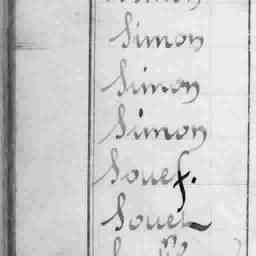 Simon
Simon
Simon
Souef.
Souet